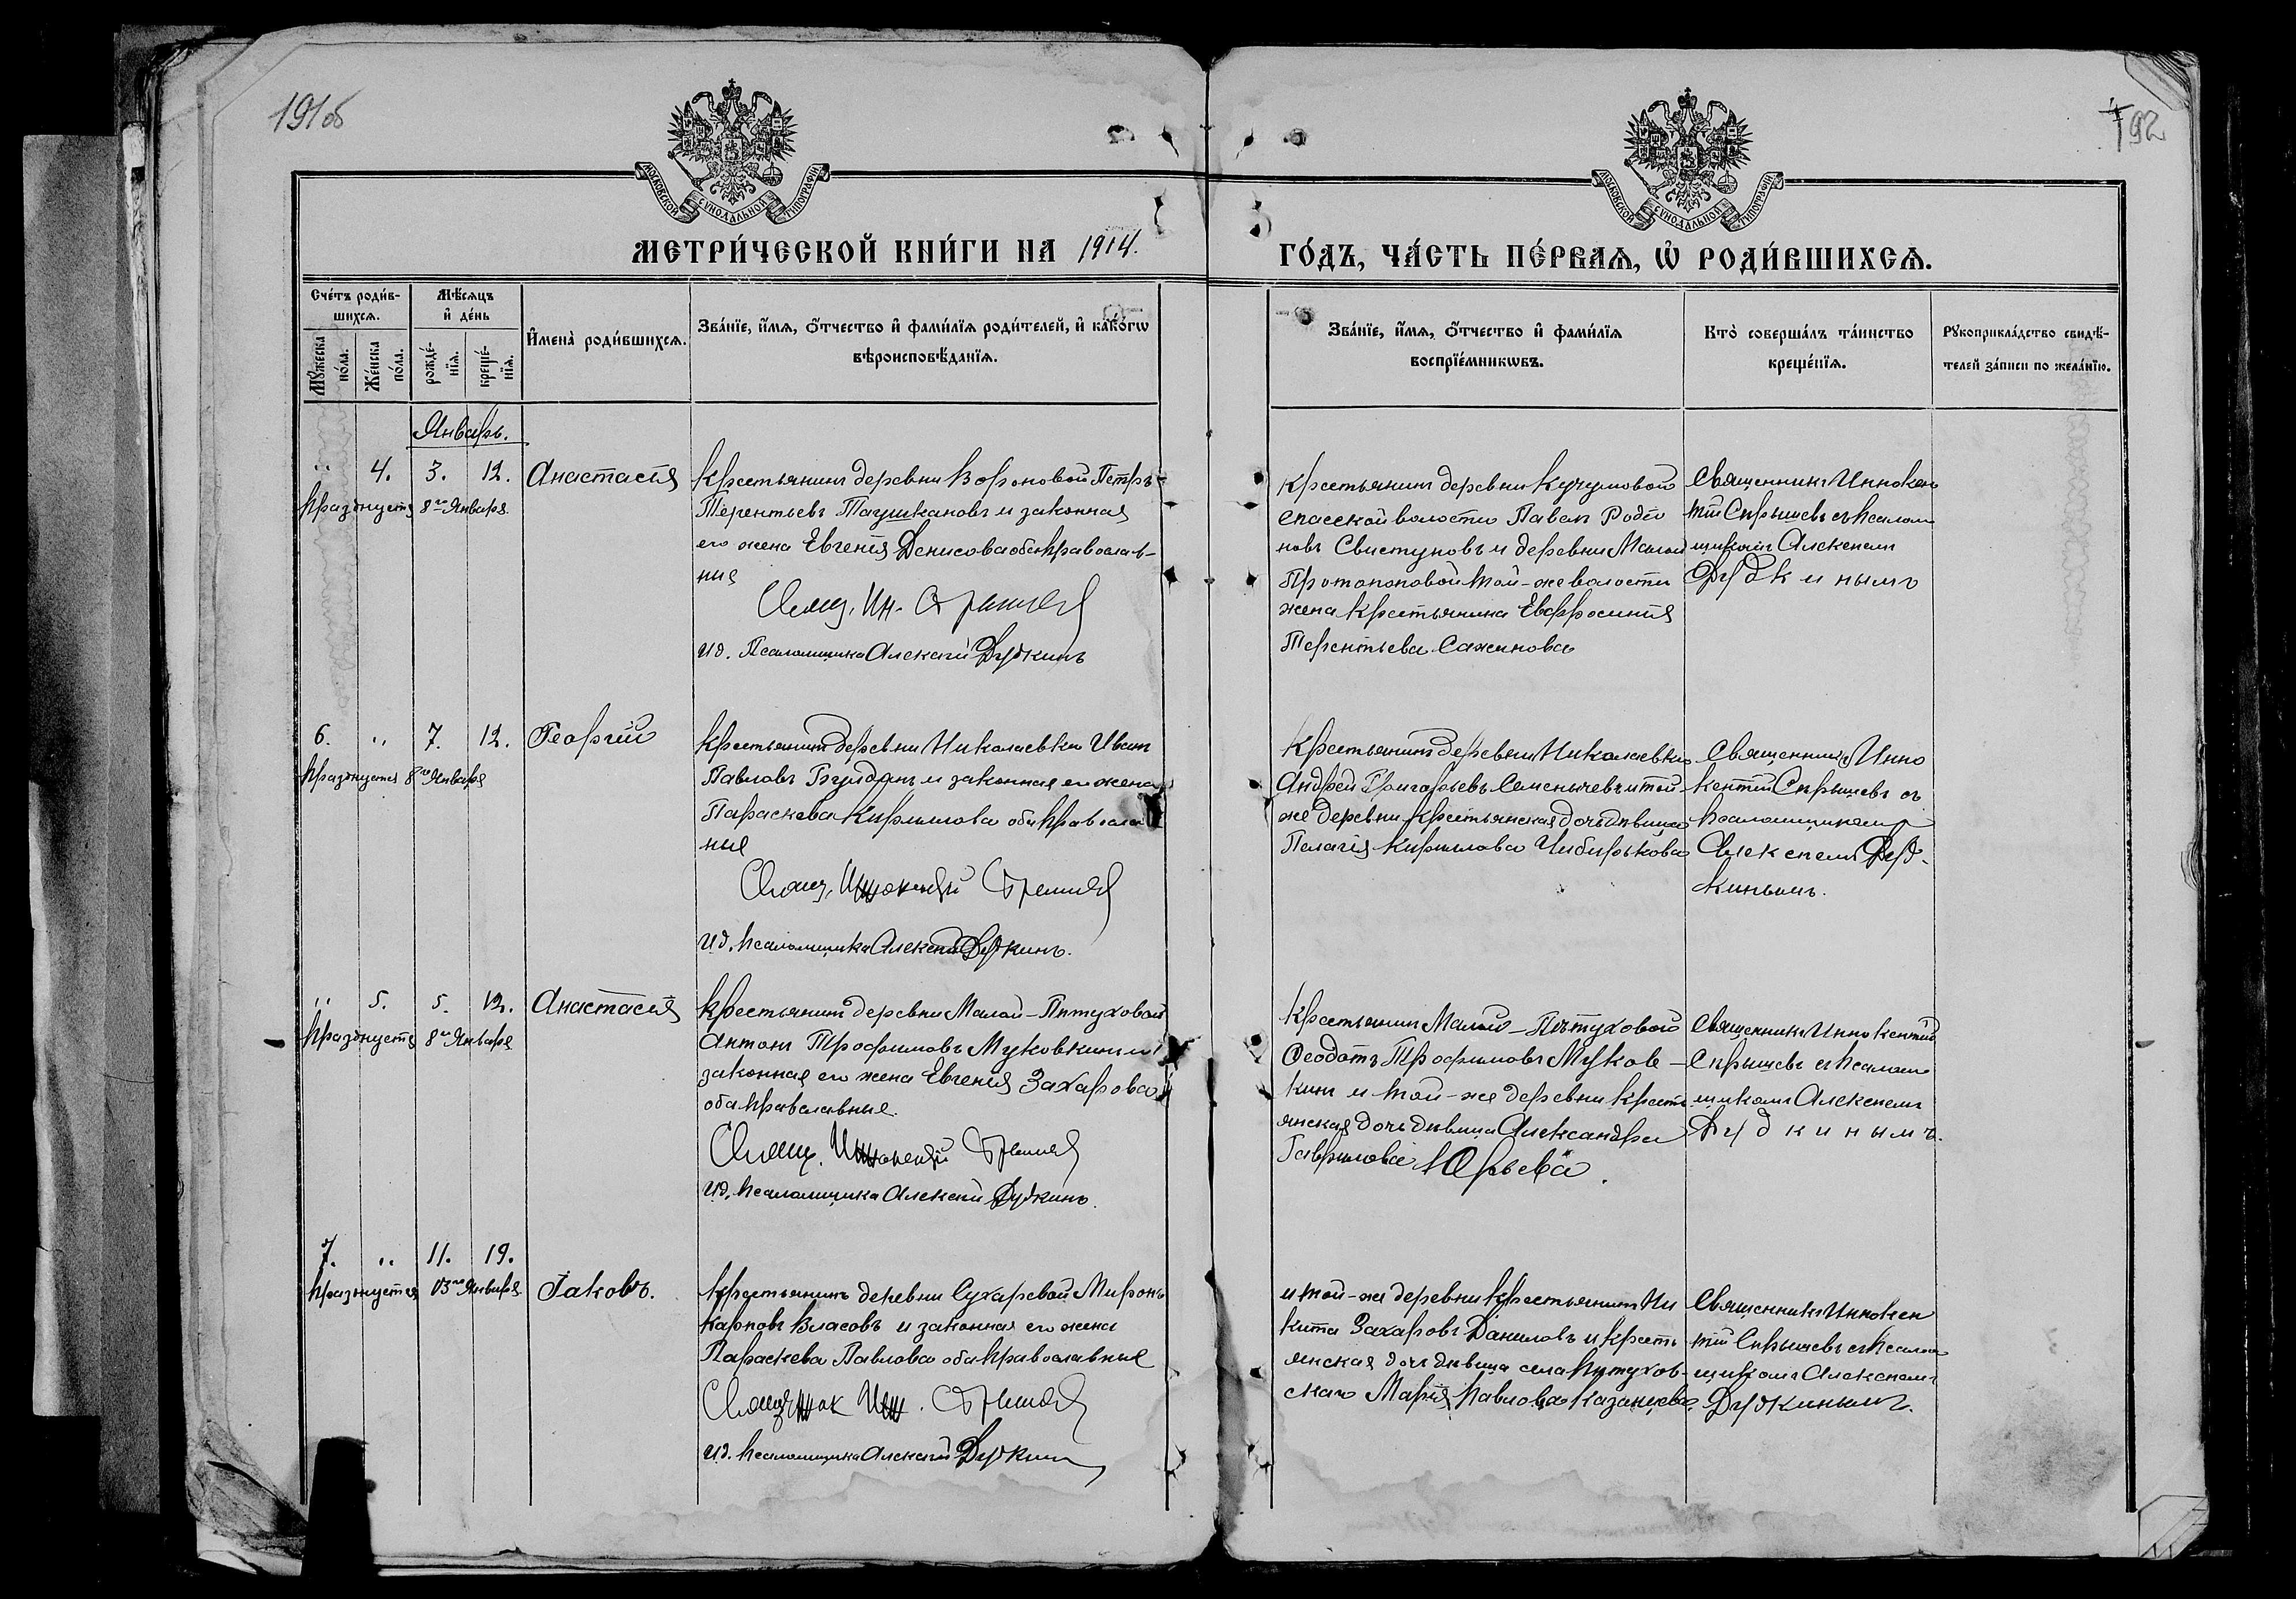 191 об
192
МОСКОВСКОЙ СѴНОДАЛЬНОЙ ТИПОГРАФІИ
МОСКОВСКОЙ СѴНОДАЛЬНОЙ ТИПОГРАФІИ
МЕТРИ́ЧЕСКОЙ КНИ́ГИ НА 1914.
ГО́ДЪ, ЧА́СТЬ ПЕ́РВАѦ, Ѡ҆ РОДИ́ВШИХСѦ.
Сче́тъ роди́в-
шихсѧ.
Мѣ́сѧцъ
и҆ де́нь
Мꙋ́жеска по́ла.
Же́нска по́ла.
рожде́-
нїѧ.
креще́-
нїѧ.
И҆мена̀ роди́вшихсѧ.
Зва́нїе, и҆́мѧ, ѻ҆́тчество и҆ фами́лїѧ роди́телей, и҆ како́гѡ
вѣроисповѣ́данїѧ.
Зва́нїе, и҆́мѧ, ѻ҆́тчество и҆ фами́лїѧ
воспрїе́мникѡвъ.
Кто̀ соверша́лъ та́инство
креще́нїѧ.
Рꙋкоприкла́дство свидѣ́-
телей за́писи по жела́нїю.
Январь.
" 4. 3. 12. Анастасія
празднуется 8го Января
Крестьянинъ деревни Вороновой Петръ
Терентьевъ Паушкановъ и законная
его жена Евгенія Денисова оба православ-
ные
Свящ. Ин. Спрышевъ
ид. Псаломщика Алексѣй Дудкинъ
Крестьянинъ деревни Кучумовой
Спасской волости Павелъ Родіо
новъ Свистуновъ и деревни Малой
Протопоповой той-же волости
жена крестьянина Евфросинія
Терентьева Сажинова
Священникъ Иннокен
тій Спрышевъ съ псалом
щикомъ Алексѣемъ
Дудкинымъ
6. " 7. 12. Георгій
празднуется 8го Января
Крестьянинъ деревни Николаевки Иванъ
Павловъ и законная его жена
Параскева Кирилова оба православ
ные
Свящ. Иннокентій Спрышевъ
ид. псаломщика Алексѣй Дудкинъ.
Крестьянинъ деревни Николаевки
Андрей Григорьевъ Семенычевъ и той-
же деревни крестьянская дочь дѣвица
Пелагія Кирилова Чибирькова
Священникъ Инно
кентій Спрышевъ съ
псаломщикомъ
Алексѣемъ Дуд-
кинымъ.
" 5. 5. 12. Анастасія
празднуется 8го Января
Крестьянинъ деревни Малой-Пѣтуховой
Антонъ Трофимовъ Муковкинъ и
законная его жена Евгенія Захарова
оба православные.
Свящ. Иннокентій Спрышевъ
ид. псаломщика Алексѣй Дудкинъ.
Крестьянинъ Малой-Пѣтуховой
Ѳеодотъ Трофимовъ Муков-
кинъ и той-же деревни кресть
янская дочь дѣвица Александра
Гаврилова Юрьева.
Священникъ Иннокентій
Спрышевъ съ псалом
щикомъ Алексѣемъ
Дудкинымъ.
7. " 11. 19.
празднуется 13го Января Іаковъ.
Крестьянинъ деревни Сухаревой Миронъ
Карповъ Власовъ и законная его жена
Параскева Павлова оба православные
Священник Инн. Спрышевъ
ид. псаломщика Алексѣй Дудкинъ
и той-же деревни крестьянинъ Ни
кита Захаровъ Даниловъ и кресть
янская дочь дѣвица села Пѣтухов-
скаго Марія Павлова Казанцева
Священникъ Иннокен
тій Спрышевъ съ псалом
щикомъ Алексѣемъ
Дудкинымъ.